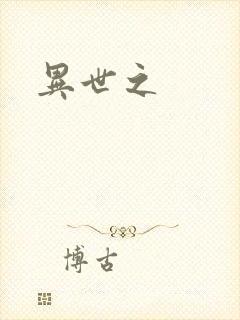 異世之
博古